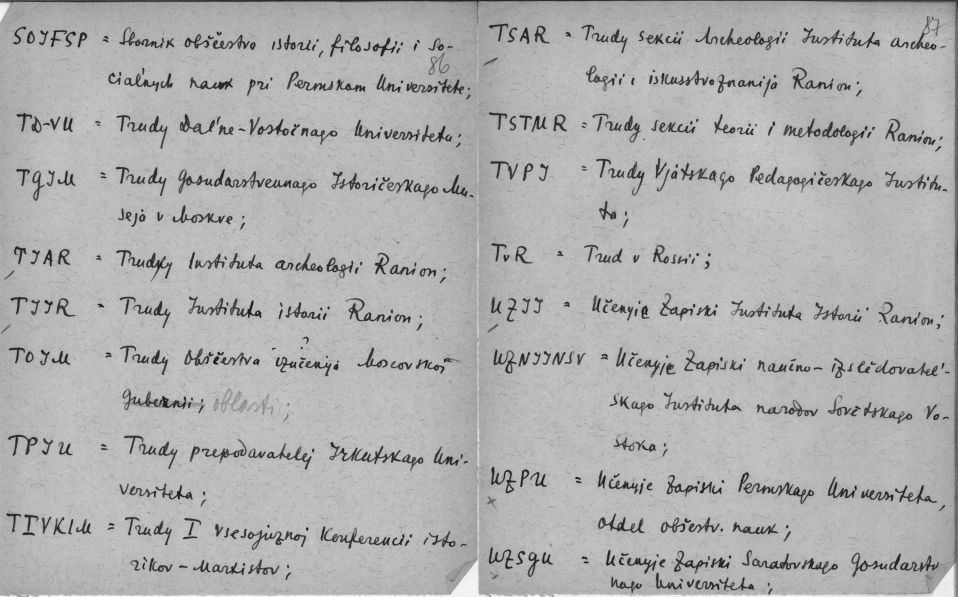 86
SOIFSP = Sbornik obščestva istorii, filosofii i So-
cial'nych nauk pri Permskom Universitete;
TD-VU = Trudy Dal'ne-Vostočnago Universiteta;
TGIM = Trudy Gosudarstvennago Istoričeskago Mu-
seja v Moskve;
TIAR = Trudy Instituta archeologii Ranion;
TIIR = Trudy Instituta istorii Ranion;
TOIM = Trudy Obščestva izučenija Moscovskoj
?
Gubernii; oblasti;
TPIU = Trudy prepodavatelej Irkutskago Uni-
versiteta;
TIVKIM = Trudy I vsesojuznoj Konferencii isto-
rikov-Marxistov;
87
TSAR = Trudy sekcii Archeologii Instituta archeo-
logii i iskusstvoznanija Ranion;
TSTMR = Trudy sekcii teorii i metodologii Ranion;
TVPI = Trudy Vjatskago Pedagogičeskago Institu-
ta;
TvR = Trud v Rossii;
UZII = Učenyje Zapiski Instituta Istorii Ranion;
UZNIINSV = Učenyje Zapiski naučno-izslědovatel'-
skago Instituta narodov Sovětskago Vo-
stoka;
UZPU = Učenyje Zapiski Permskago Universiteta,
otdel obšestv. nauk;
UZSGU = Učenyje Zapiski Saratovskago Gosudarstv
nago Universiteta;